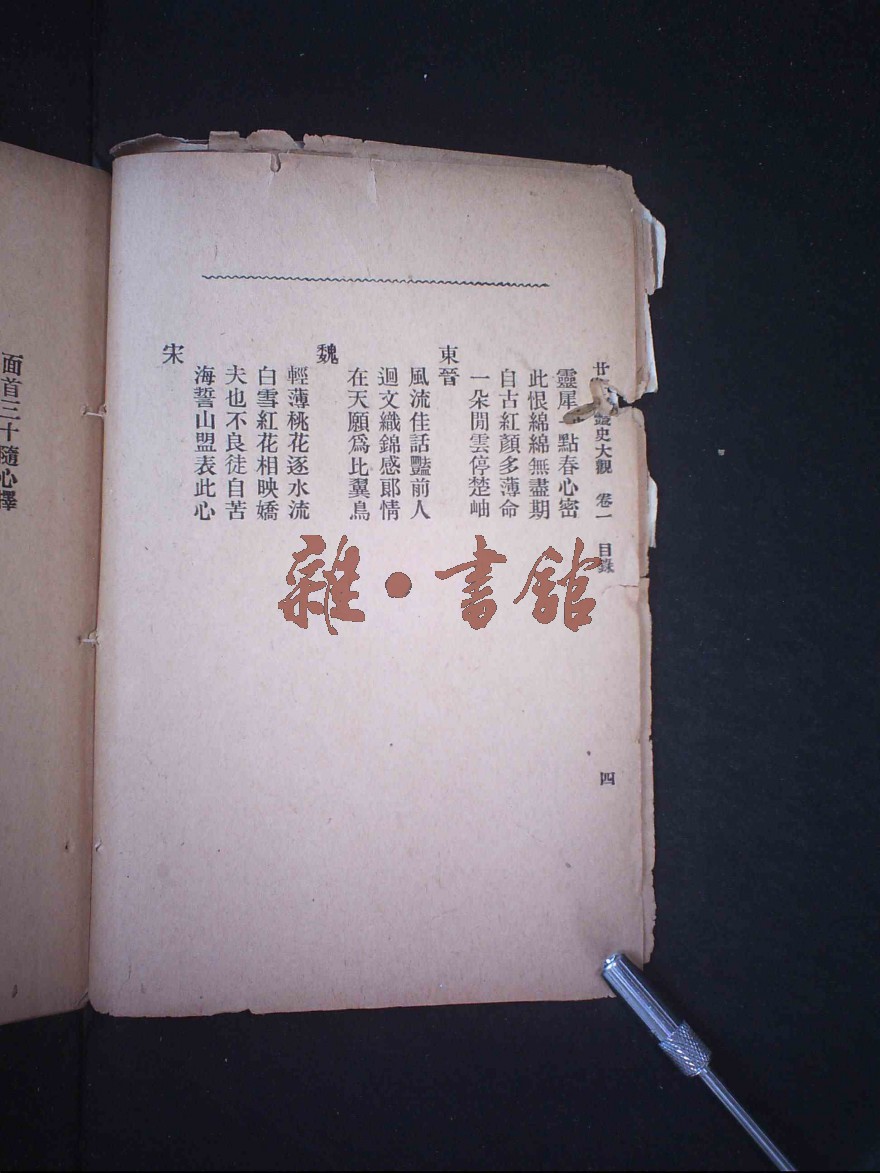 史大觀 卷一 目錄
靈犀一點春心密
此恨綿綿無盡期
自古紅顏多薄命
一朵閒雲停楚岫
東晉
風流佳話豔前人
迴文織錦感郞情
在天願爲比翼鳥
魏
輕薄桃花逐水流
白雪紅花相映嬌
夫也不良徒自苦
海誓山盟表此心
宋
四
面首三十隨心擇
雜·書館